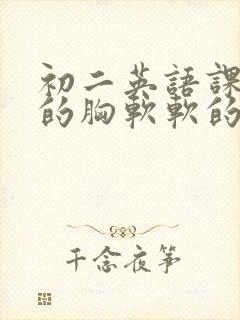 初二英語課
的胸軟軟的
千念夜箏